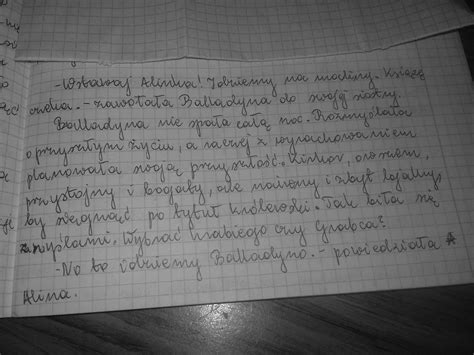 - Wstawaj Alinka! Idziemy na maliny. Książę
czeka. - zawołała Balladyna do swojej siostry.
Balladyna nie spała całą noc. Rozmyślała
o przyszłym życiu, a raczej z wyrachowaniem
planowała swoją przyszłość. Kirkor, owszem,
przystojny i bogaty, ale naiwny i zbyt lojalny
by sięgnąć po tytuł królewski. Tak biła się
z myślami. Wybrać hrabiego czy Grabca?
- No to idziemy Balladyno. - powiedziała
Alina.